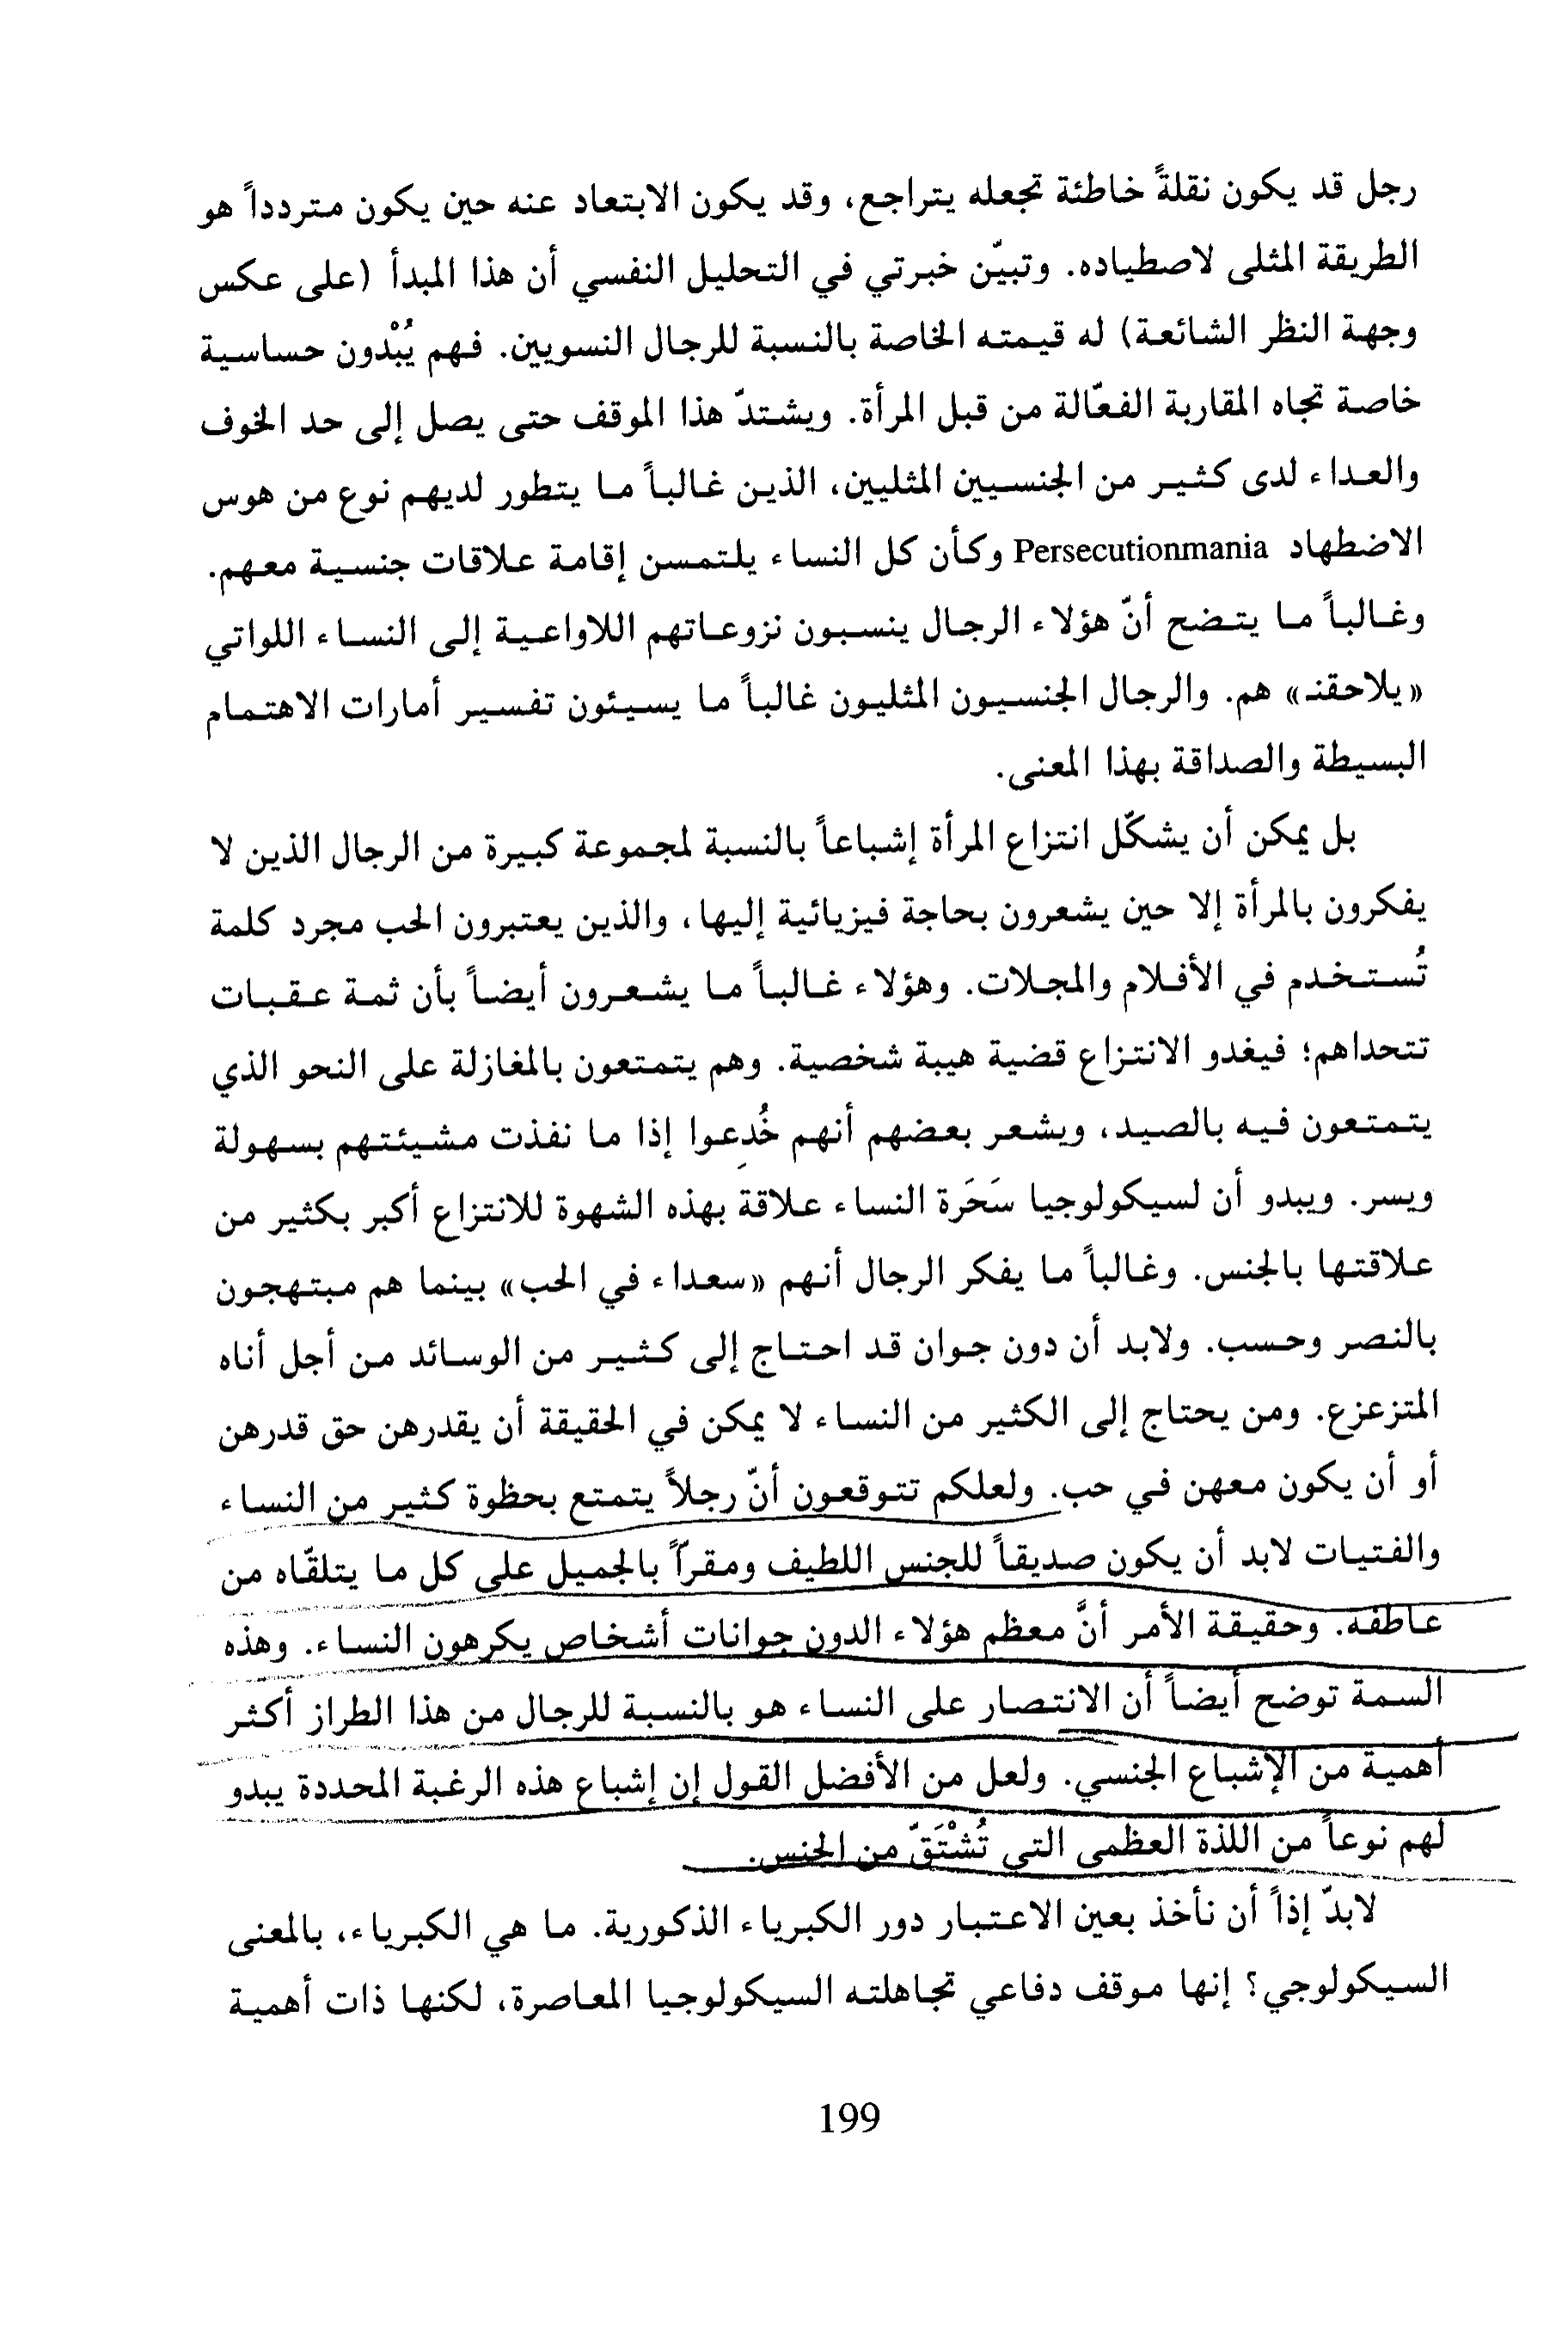 رجل قد يكون نقلةً خاطئة تجعله يتراجع، وقد يكون الابتعاد عنه حين يكون متردداً هو
الطريقة المثلى لاصطياده. وتبيّن خبرتي في التحليل النفسي أن هذا المبدأ (على عكس
وجهة النظر الشائعة) له قيمته الخاصة بالنسبة للرجال النسويين. فهم يُبْدون حساسية
خاصة تجاه المقاربة الفعّالة من قبل المرأة. ويشتدّ هذا الموقف حتى يصل إلى حد الخوف
والعداء لدى كثير من الجنسيين المثليين، الذين غالباً ما يتطور لديهم نوع من هوس
الاضطهاد Persecutionmania وكأن كل النساء يلتمسن إقامة علاقات جنسية معهم.
وغالباً ما يتضح أنّ هؤلاء الرجال ينسبون نزوعاتهم اللاواعية إلى النساء اللواتي
«يلاحقنـ» هم. والرجال الجنسيون المثليون غالباً ما يسيئون تفسير أمارات الاهتمام
البسيطة والصداقة بهذا المعنى.
بل يمكن أن يشكّل انتزاع المرأة إشباعاً بالنسبة لمجموعة كبيرة من الرجال الذين لا
يفكرون بالمرأة إلا حين يشعرون بحاجة فيزيائية إليها، والذين يعتبرون الحب مجرد كلمة
تُستخدم في الأفلام والمجلات. وهؤلاء غالباً ما يشعرون أيضاً بأن ثمة عقبات
تتحداهم؛ فيغدو الانتزاع قضية هيبة شخصية. وهم يتمتعون بالمغازلة على النحو الذي
يتمتعون فيه بالصيد، ويشعر بعضهم أنهم خُدِعوا إذا ما نفذت مشيئتهم بسهولة
ويسر. ويبدو أن لسيكولوجيا سَحَرة النساء علاقة بهذه الشهوة للانتزاع أكبر بكثير من
علاقتها بالجنس. وغالباً ما يفكر الرجال أنهم «سعداء في الحب» بينما هم مبتهجون
بالنصر وحسب. ولابد أن دون جوان قد احتاج إلى كثير من الوسائد من أجل أناه
المتزعزع. ومن يحتاج إلى الكثير من النساء لا يمكن في الحقيقة أن يقدرهن حق قدرهن
أو أن يكون معهن في حب. ولعلكم تتوقعون أنّ رجلاً يتمتع بحظوة كثير من النساء
والفتيات لابد أن يكون صديقاً للجنس اللطيف ومقرّاً بالجميل على كل ما يتلقّاه من
عاطفة. وحقيقة الأمر أنَّ معظم هؤلاء الدون جوانات أشخاص يكرهون النساء. وهذه
السمة توضح أيضاً أن الانتصار على النساء هو بالنسبة للرجال من هذا الطراز أكثر
أهمية من الإشباع الجنسي. ولعل من الأفضل القول إن إشباع هذه الرغبة المحددة يبدو
لهم نوعاً من اللذة العظمى التي تُشْتَقّ من الجنس.
لابدّ إذاً أن نأخذ بعين الاعتبار دور الكبرياء الذكورية. ما هي الكبرياء، بالمعنى
السيكولوجي؟ إنها موقف دفاعي تجاهلته السيكولوجيا المعاصرة، لكنها ذات أهمية
199